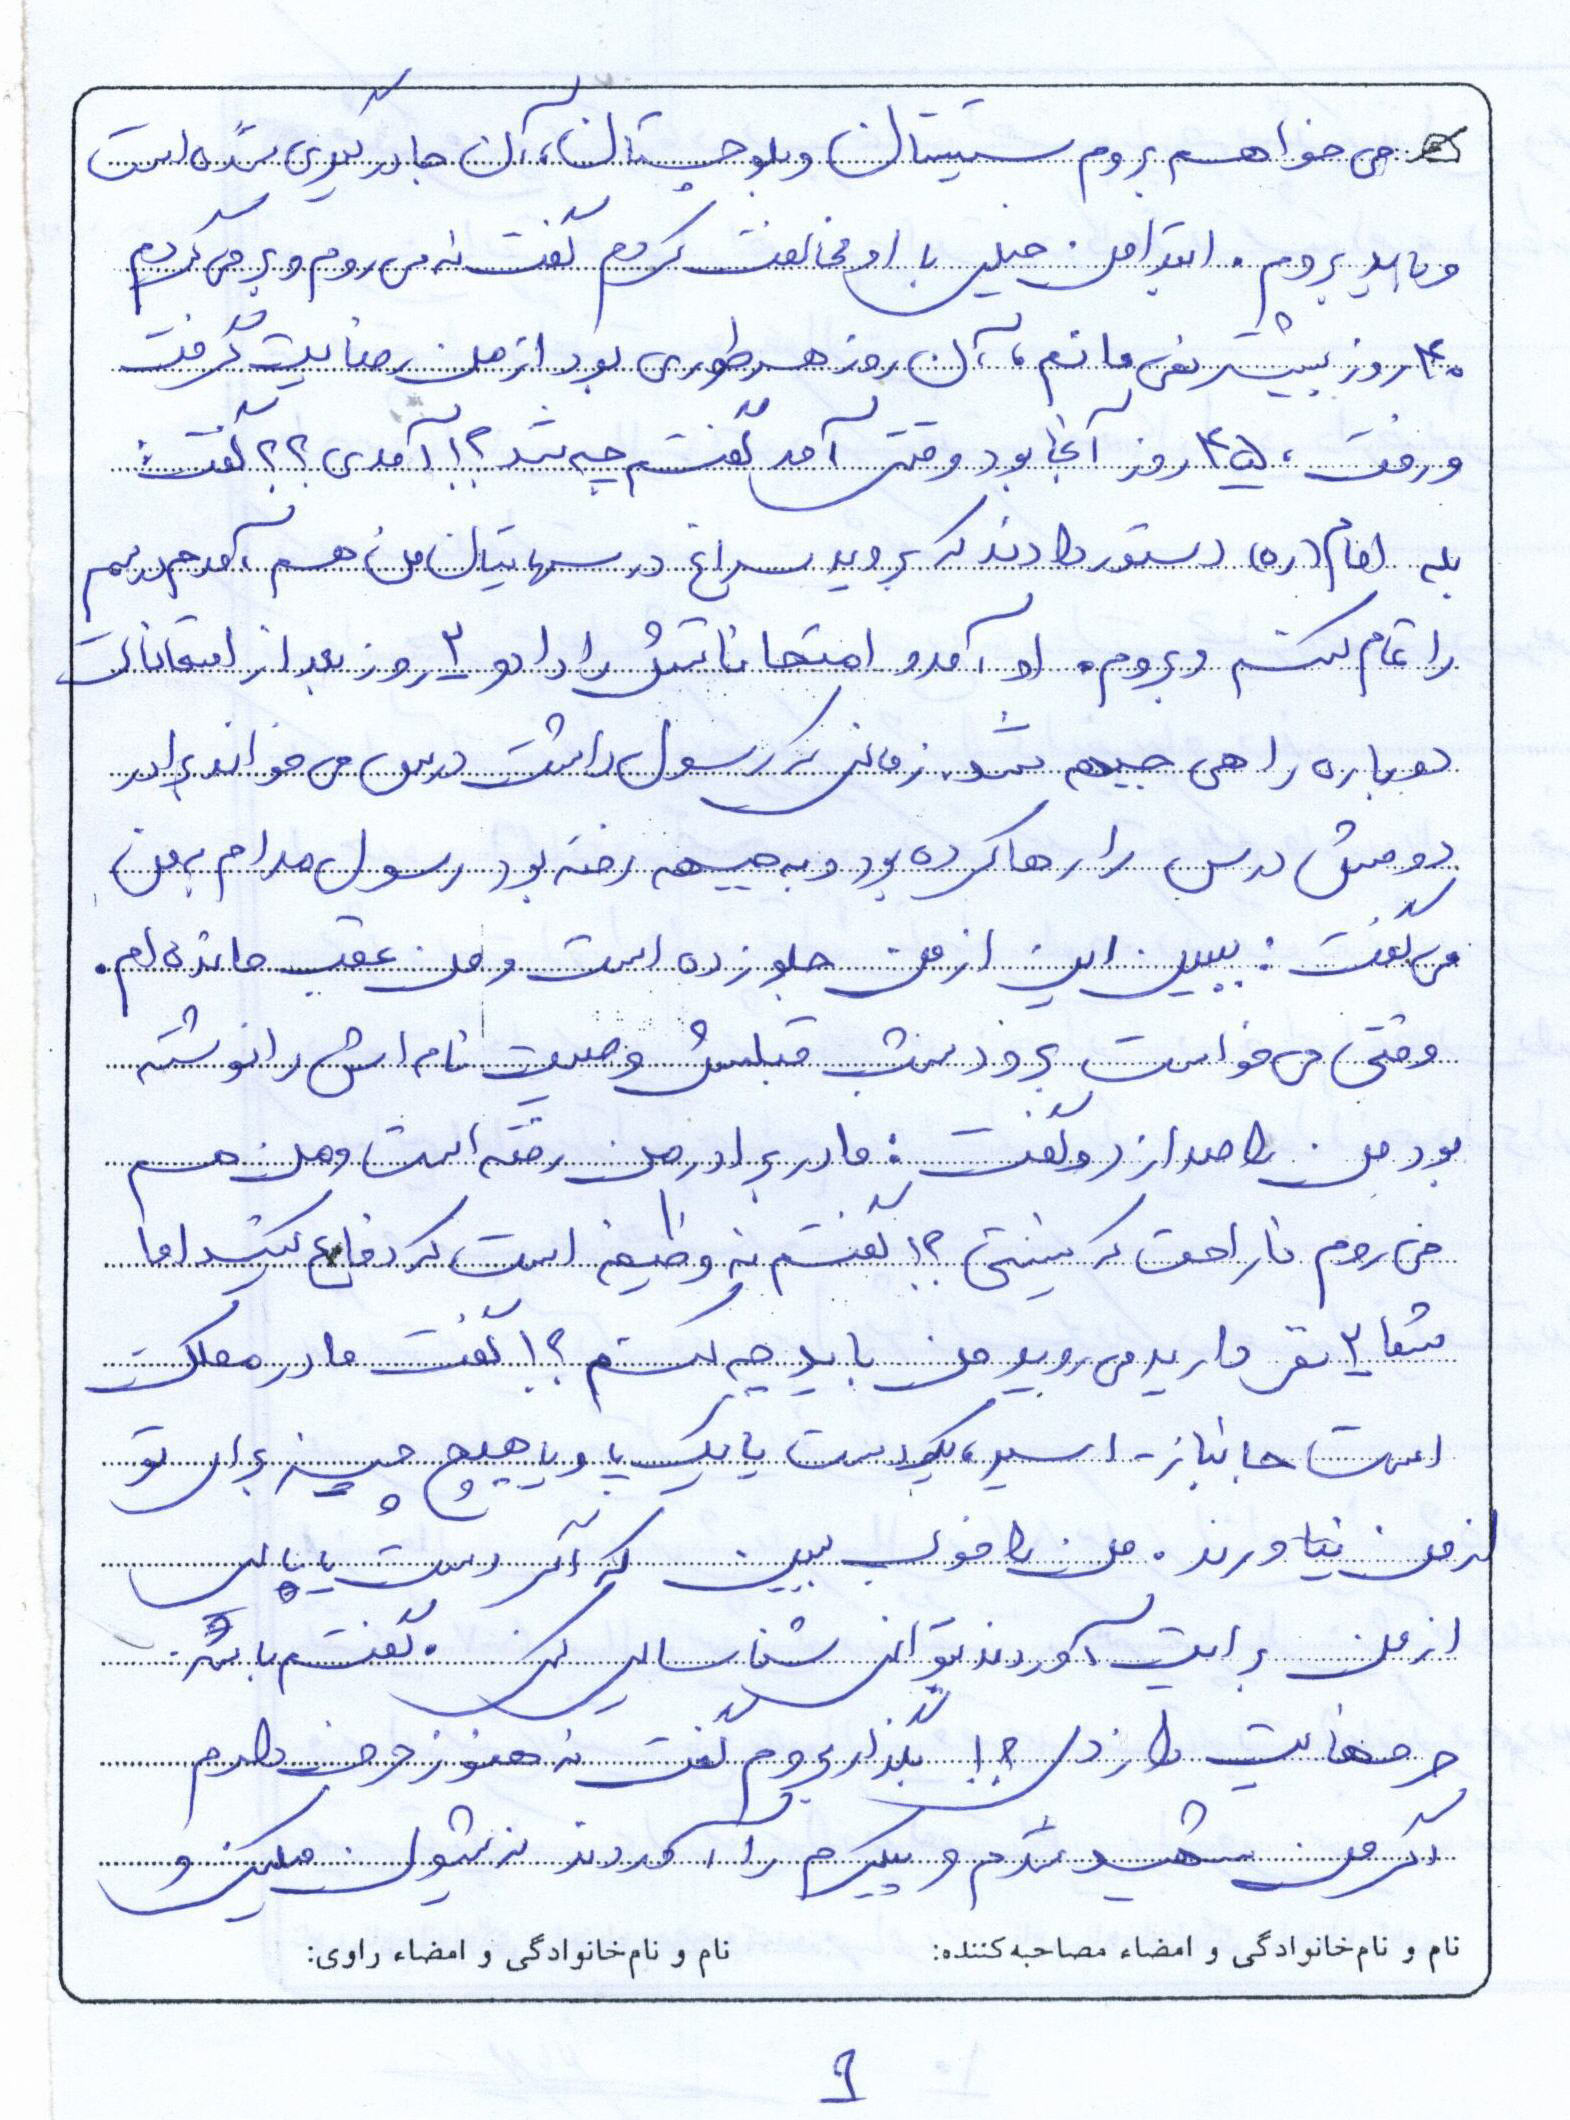 می خواهم بروم سیستان و بلوچستان، آن جا درگیری شده است
و باید بروم. ابتدا من خیلی با او مخالفت کردم گفت نه می روم و بر می گردم
۴۰ روز بیشتر نمی مانم، آن روز هر طوری بود از من رضایت گرفت
و رفت، ۴۵ روز آنجا بود وقتی آمد گفتم چه شد؟! آمدی؟؟ گفت:
بله امام (ره) دستور دادند که بروید سراغ درسهایتان من هم آمدم درسم
را تمام کنم و بروم. او آمد و امتحاناتش را داد و ۳ روز بعد از امتحانات
دوباره راهی جبهه شد. زمانی که رسول داشت درس می خواند برادر
دومش درس را رها کرده بود و به جبهه رفته بود رسول مدام به من
می گفت: ببین این از من جلو زده است و من عقب مانده ام.
وقتی می خواست برود شب قبلش وصیت نامه اش را نوشته
بود من را صدا زد و گفت: مادر برادر من رفته است و من هم
می روم ناراحت که نیستی؟! گفتم نه وظیفه است که دفاع کنید اما
شما ۳ نفر دارید می روید من باید چه کنم؟! گفت مادر مملکت
است جانباز - اسیر، یک دست یا یک پا و یا هیچ چیز برای تو
از من نیاورند. من را خوب ببین که اگر دست یا پایی
از من برایت آوردند بتوانی شناسایی کنی. گفتم باشه.
حرفهایت را زدی؟! بگذار بروم گفت نه هنوز حرف دارم
اگر من شهید شدم و پیکرم را آوردند نه شیون میکنی و
نام و نام خانوادگی و امضاء مصاحبه کننده: نام و نام خانوادگی و امضاء راوی:
۹